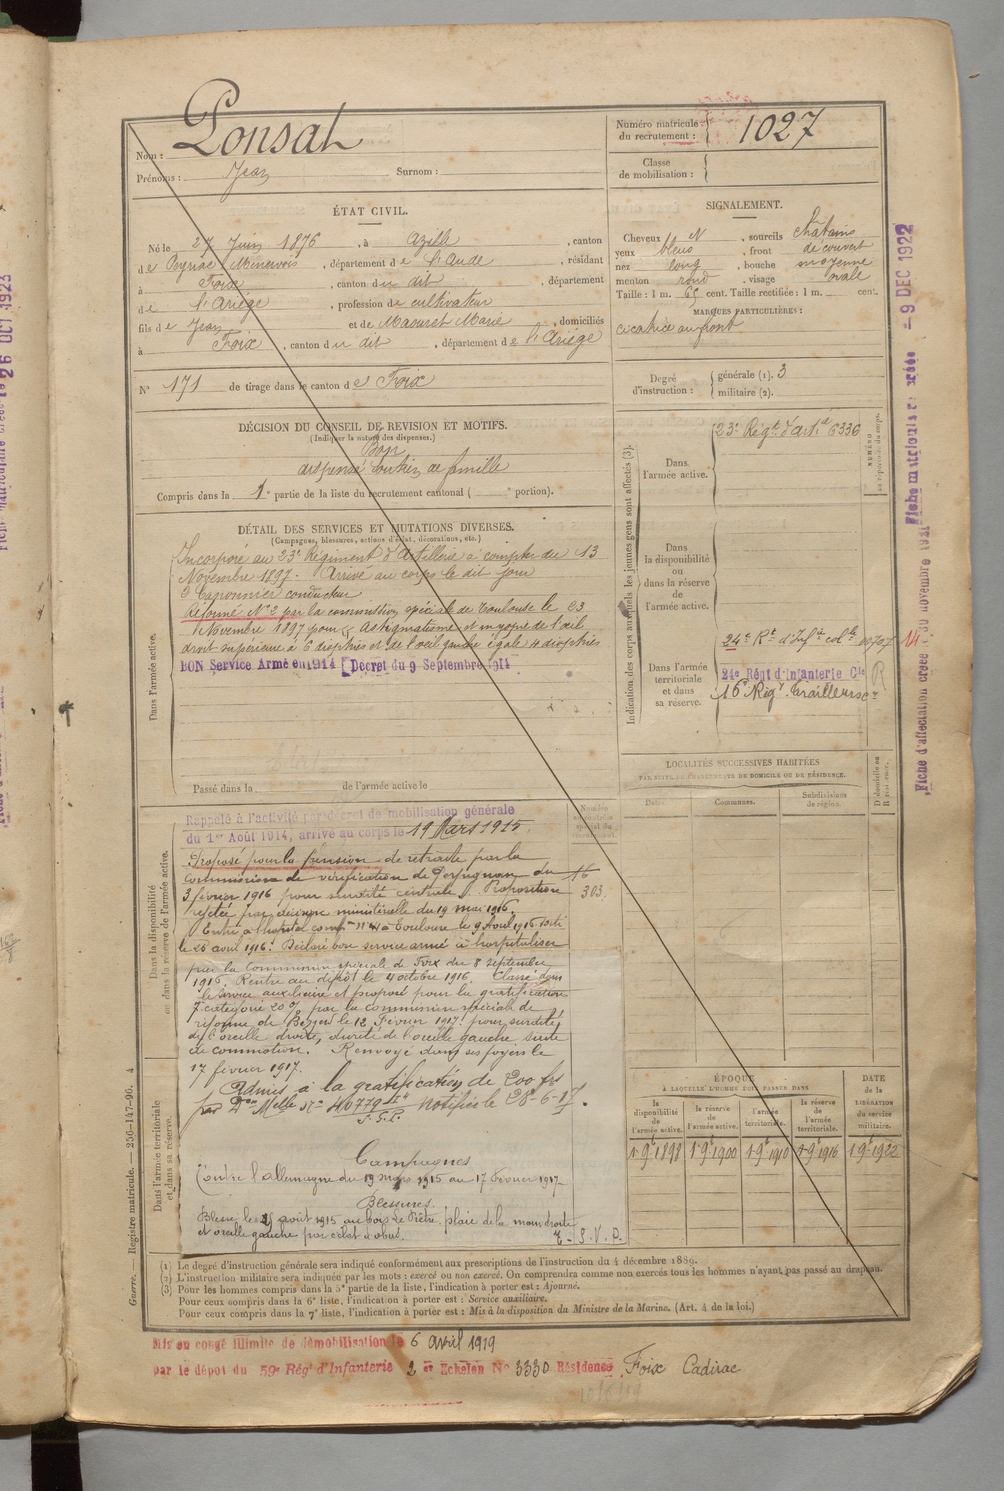 Nom : Ponsat
Prénoms : Jean Surnom :
Numéro matricule du recrutement : 1027
Classe de mobilisation :
ÉTAT CIVIL.
Né le 27 Juin 1876, à Azille, canton
de Peyriac Minervois, département de l'Aude, résidant
à Foix, canton du dit, département
de l'Ariège, profession de cultivateur
fils de Jean et de Maouret Marie, domiciliés
à Foix, canton du dit, département de l'Ariège
N° 171 de tirage dans le canton de Foix
SIGNALEMENT.
Cheveux N, sourcils châtains
yeux bleus, front découvert
nez long, bouche moyenne
menton rond, visage ovale
Taille : 1 m. 65 cent. Taille rectifiée : 1 m. cent.
MARQUES PARTICULIÈRES :
cicatrice au front
Degré d'instruction : générale (1). 3
militaire (2).
DÉCISION DU CONSEIL DE REVISION ET MOTIFS.
(Indiquer la nature des dispenses.)
Bon
dispensé soutien de famille
Compris dans la 1e partie de la liste du recrutement cantonal ( e portion).
DÉTAIL DES SERVICES ET MUTATIONS DIVERSES.
(Campagnes, blessures, actions d'éclat, décorations, etc.)
Dans l'armée active.
Incorporé au 23e Régiment d'Artillerie à compter du 13
Novembre 1897. Arrivé au corps le dit jour
conducteur
Réformé N° 2 par la commission spéciale de Toulouse le 23
Novembre 1897 pour astigmatisme et myopie de l'œil
droit supérieure à 6 dioptries et de l'œil gauche égale 4 dioptries
BON Service Armé en 1914 [Décret du 9 Septembre 1914
Passé dans la de l'armée active le
Indication des corps auxquels les jeunes gens sont affectés (3).
NUMÉRO au répertoire du corps.
Dans l'armée active.
23e Régt d'artie 6336
Dans la disponibilité ou dans la réserve de l'armée active.
Dans l'armée territoriale et dans sa réserve.
24e Rt d'Infie colle
24e Régt d'Infanterie Cle R
16e Régt Tirailleurs
LOCALITÉS SUCCESSIVES HABITÉES
PAR SUITE DE CHANGEMENTS DE DOMICILE OU DE RÉSIDENCE.
Dates. Communes. Subdivisions de région. D domicile ou R résidence.
Dans la disponibilité ou dans la réserve de l'armée active.
Rappelé à l'activité par décret de mobilisation générale
du 1er Août 1914, arrivé au corps le 19 Mars 1915.
Proposé pour la pension de retraite par la
commission de vérification de Perpignan du
3 février 1916 pour surdité centrale. Proposition
rejetée par décision ministérielle du 19 mai 1916.
Entré à l'hopital compre n° 41 à Toulouse le 9 Avril 1916 sorti
le 28 aout 1916. Déclaré bon service armé à hospitaliser
par la Commission spéciale de Foix du 8 septembre
1916. Rentré au dépôt le 4 octobre 1916. Classé dans
le service auxiliaire et proposé pour la gratification
7e catégorie 20% par la commission spéciale de
réforme de Béziers le 12 Février 1917 pour surdité
de l'oreille droite, dureté de l'oreille gauche suite
de commotion. Renvoyé dans ses foyers le
17 février 1917.
Admis à la gratification de 200 frs
par Don Melle N° 40779 notifiée le 28-6-17.
F.G.P.
Dans l'armée territoriale et dans sa réserve.
Campagnes
Contre l'allemagne du 19 mars 1915 au 17 Février 1917
Blessures
Blessé le 25 août 1915 au bois Le Prêtre. plaie de la main droite
et oreille gauche par éclat d'obus.
T.S.V.P.
ÉPOQUE
À LAQUELLE L'HOMME DOIT PASSER DANS
la disponibilité de l'armée active. la réserve de l'armée active. l'armée territoriale. la réserve de l'armée territoriale.
DATE de la LIBÉRATION du service militaire.
1 9e 1898 1 9e 1900 1 9e 1910 1 9e 1916 1 9e 1922
(1) Le degré d'instruction générale sera indiqué conformément aux prescriptions de l'instruction du 4 décembre 1889.
(2) L'instruction militaire sera indiquée par les mots : exercé ou non exercé. On comprendra comme non exercés tous les hommes n'ayant pas passé au drapeau.
(3) Pour les hommes compris dans la 5e partie de la liste, l'indication à porter est : Ajourné.
Pour ceux compris dans la 6e liste, l'indication à porter est : Service auxiliaire.
Pour ceux compris dans la 7e liste, l'indication à porter est : Mis à la disposition du Ministre de la Marine. (Art. 4 de la loi.)
Mis en congé illimité de démobilisation le 6 avril 1919
par le dépôt du 59e Régt d'Infanterie 2 er Echelon N° 3330 Résidence Foix Cadirac
Guerre. — Registre matricule. — 256-147-96. 4
Fiche matricule créée - 9 DEC 1922
Fiche d'affectation créée le 30 novembre 1931
26 OCT 1923